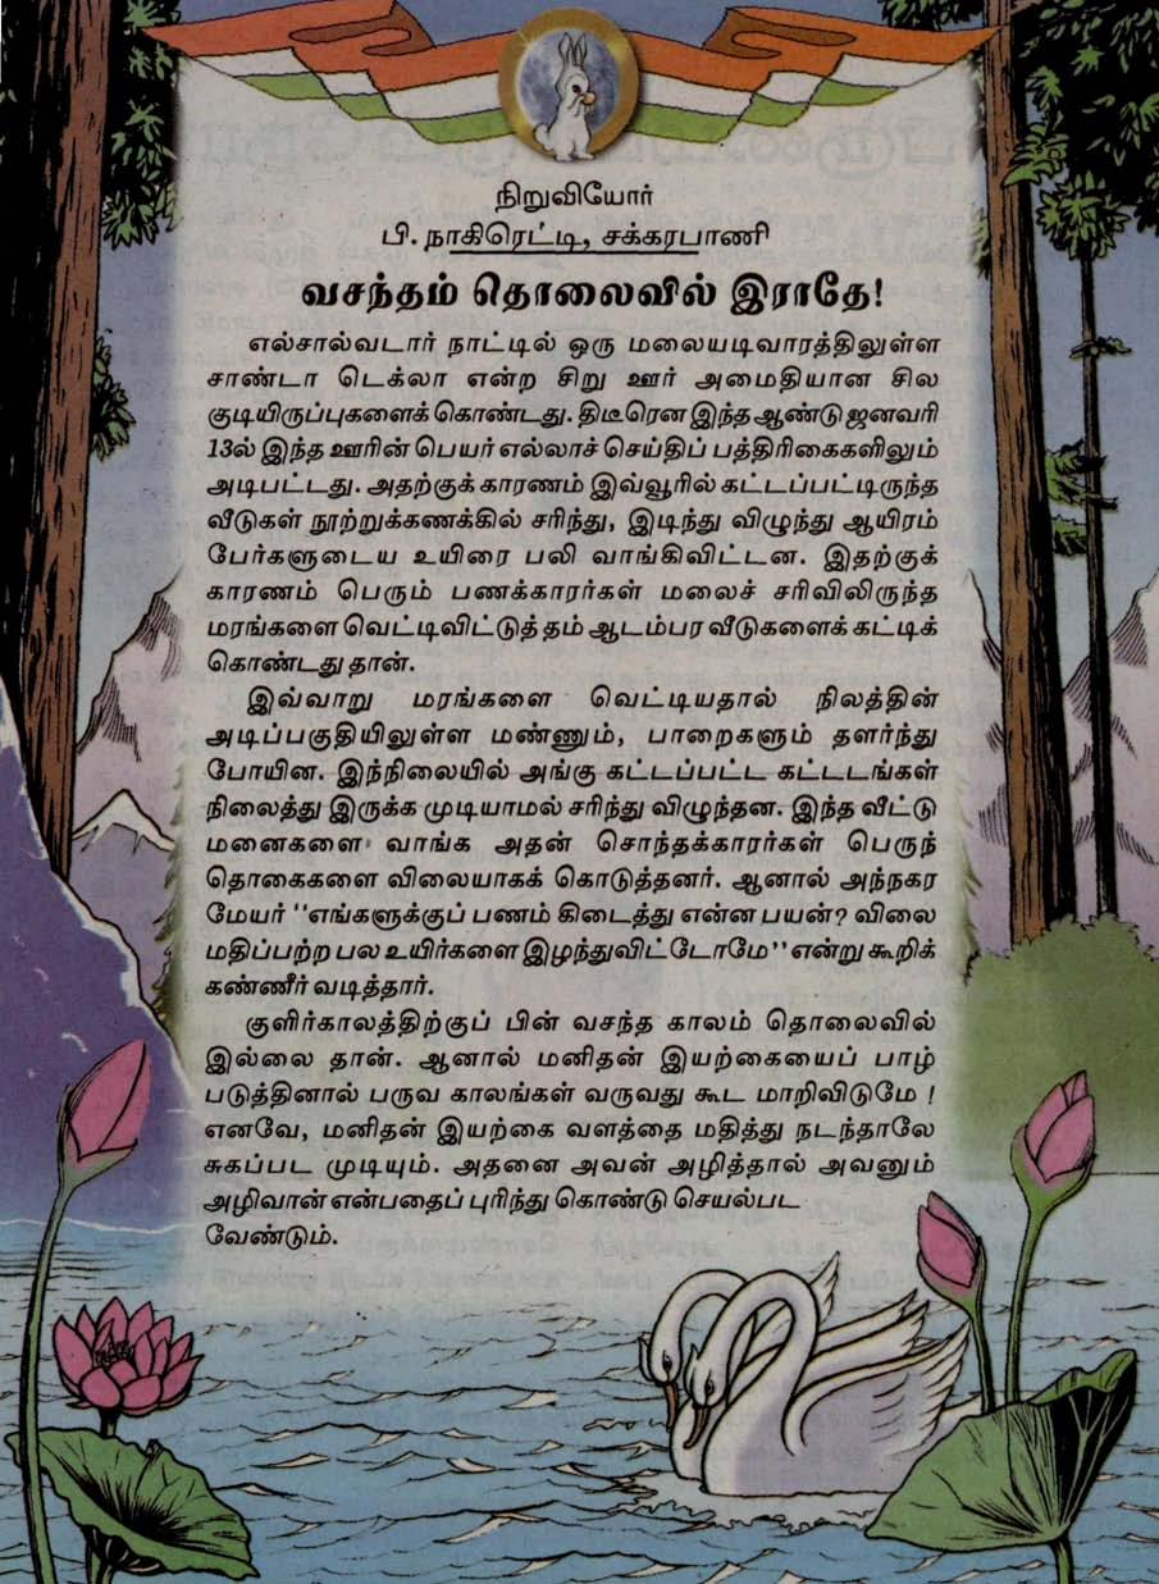 நிறுவியோர்
பி. நாகிரெட்டி, சக்கரபாணி
வசந்தம் தொலைவில் இராதே!
எல்சால்வடார் நாட்டில் ஒரு மலையடிவாரத்திலுள்ள
சாண்டா டெக்லா என்ற சிறு ஊர் அமைதியான சில
குடியிருப்புகளைக் கொண்டது. திடீரென இந்த ஆண்டு ஜனவரி
13ல் இந்த ஊரின் பெயர் எல்லாச் செய்திப் பத்திரிகைகளிலும்
அடிபட்டது. அதற்குக் காரணம் இவ்வூரில் கட்டப்பட்டிருந்த
வீடுகள் நூற்றுக்கணக்கில் சரிந்து, இடிந்து விழுந்து ஆயிரம்
பேர்களுடைய உயிரை பலி வாங்கிவிட்டன. இதற்குக்
காரணம் பெரும் பணக்காரர்கள் மலைச் சரிவிலிருந்த
மரங்களை வெட்டிவிட்டுத் தம் ஆடம்பர வீடுகளைக் கட்டிக்
கொண்டது தான்.
இவ்வாறு மரங்களை வெட்டியதால் நிலத்தின்
அடிப்பகுதியிலுள்ள மண்ணும், பாறைகளும் தளர்ந்து
போயின. இந்நிலையில் அங்கு கட்டப்பட்ட கட்டடங்கள்
நிலைத்து இருக்க முடியாமல் சரிந்து விழுந்தன. இந்த வீட்டு
மனைகளை வாங்க அதன் சொந்தக்காரர்கள் பெருந்
தொகைகளை விலையாகக் கொடுத்தனர். ஆனால் அந்நகர
மேயர் ''எங்களுக்குப் பணம் கிடைத்து என்ன பயன்? விலை
மதிப்பற்ற பல உயிர்களை இழந்துவிட்டோமே'' என்று கூறிக்
கண்ணீர் வடித்தார்.
குளிர்காலத்திற்குப் பின் வசந்த காலம் தொலைவில்
இல்லை தான். ஆனால் மனிதன் இயற்கையைப் பாழ்
படுத்தினால் பருவ காலங்கள் வருவது கூட மாறிவிடுமே !
எனவே, மனிதன் இயற்கை வளத்தை மதித்து நடந்தாலே
சுகப்பட முடியும். அதனை அவன் அழித்தால் அவனும்
அழிவான் என்பதைப் புரிந்து கொண்டு செயல்பட
வேண்டும்.